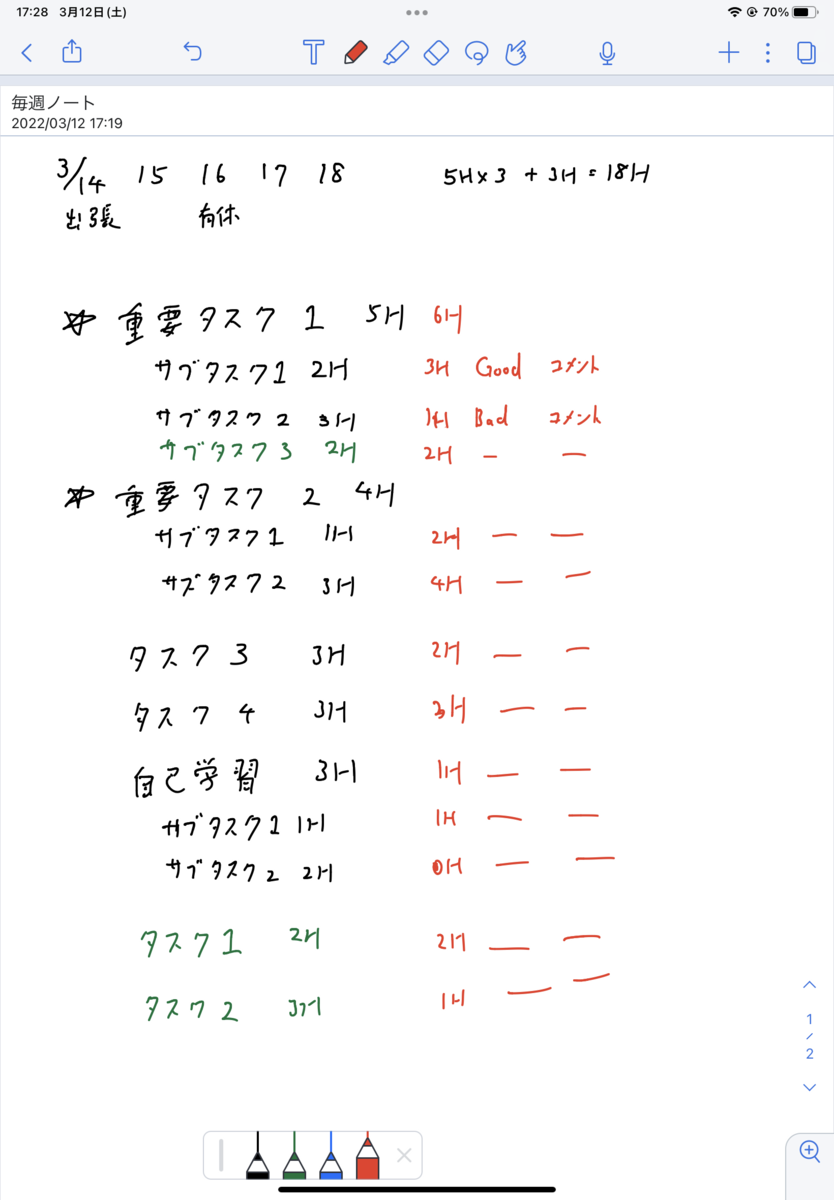 17:28 3月12日(土) 70%
毎週ノート
2022/03/12 17:19
3/14 15 16 17 18 5H×3 + 3H = 18H
出張 有休
重要タスク 1 5H 6H
サブタスク1 2H 3H Good コメント
サブタスク 2 3H 1H Bad コメント
サブタスク 3 2H 2H - -
重要タスク 2 4H
サブタスク1 1H 2H - -
サブタスク2 3H 4H - -
タスク 3 3H 2H - -
タスク 4 3H 3H - -
自己学習 3H 1H - -
サブタスク1 1H 1H - -
サブタスク2 2H 0H - -
タスク1 2H 2H - -
タスク2 3H 1H - -
1
/
2